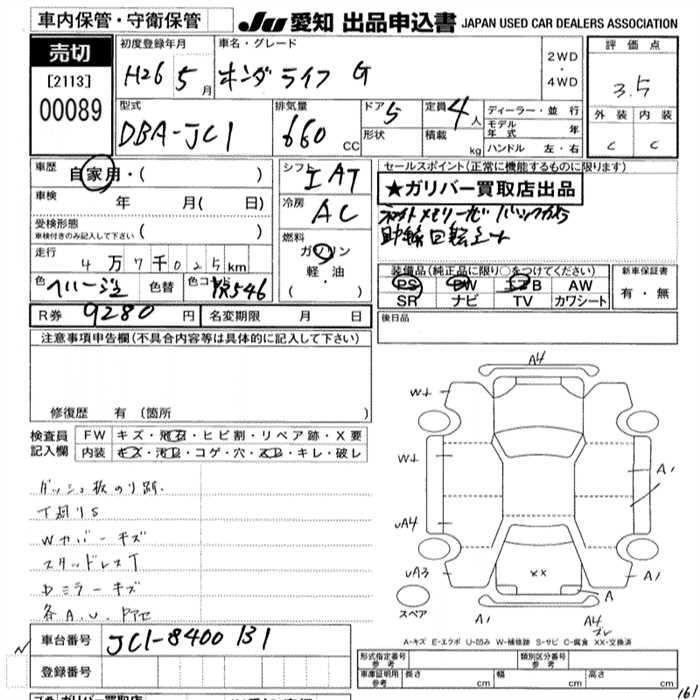 車内保管・守衛保管
JU 愛知 出品申込書 JAPAN USED CAR DEALERS ASSOCIATION
売切
[2113]
00089
初度登録年月
H26 5月
車名・グレード
ホンダ ライフ G
2WD
・
4WD
評価点
3.5
外装 内装
C C
型式
DBA-JC1
排気量
660 CC
ドア 5
形状
定員 4人
積載 kg
ディーラー・並行
モデル年式 年
ハンドル 左・右
車歴
自家用・( )
車検
年 月( 日)
受検形態
車検付きのみ記入して下さい ( )
走行
4万7千025km
色 ベージュ 色替 色コード YR546
シフト
IAT
冷房
AC
燃料
ガソリン
軽・油
・( )
セールスポイント(正常に機能するものに限ります)
★ガリバー買取店出品
助手席回転シート
装備品(純正品に限り○をつけてください)
PS PW エアB AW
SR ナビ TV カワシート
新車保証書
有・無
R券 9280円 名変期限 月 日
後日品
注意事項申告欄(不具合内容等は具体的に記入して下さい)
修復歴 有(箇所 )
検査員
記入欄
FW キズ・飛石・ヒビ割・リペア跡・X要
内装 キズ・汚れ・コゲ・穴・スレ・キレ・破レ
ダッシュ板のり跡.
T廻りS
Wカバーキズ
スタッドレスT
Dミラーキズ
各A.U.
A4
W+
W+
uA4
uA3
A1
A1
A
A1
A4
XX
スペア
A-キズ E-エクボ U-凹み W-補修跡 S-サビ C-腐食 XX-交換済
車台番号 JC1-8400131
登録番号
形式指定番号
参考
類別区分番号
参考
車庫証明用
参考
長さ cm 幅 cm 高さ cm
161
ガリバー買取店